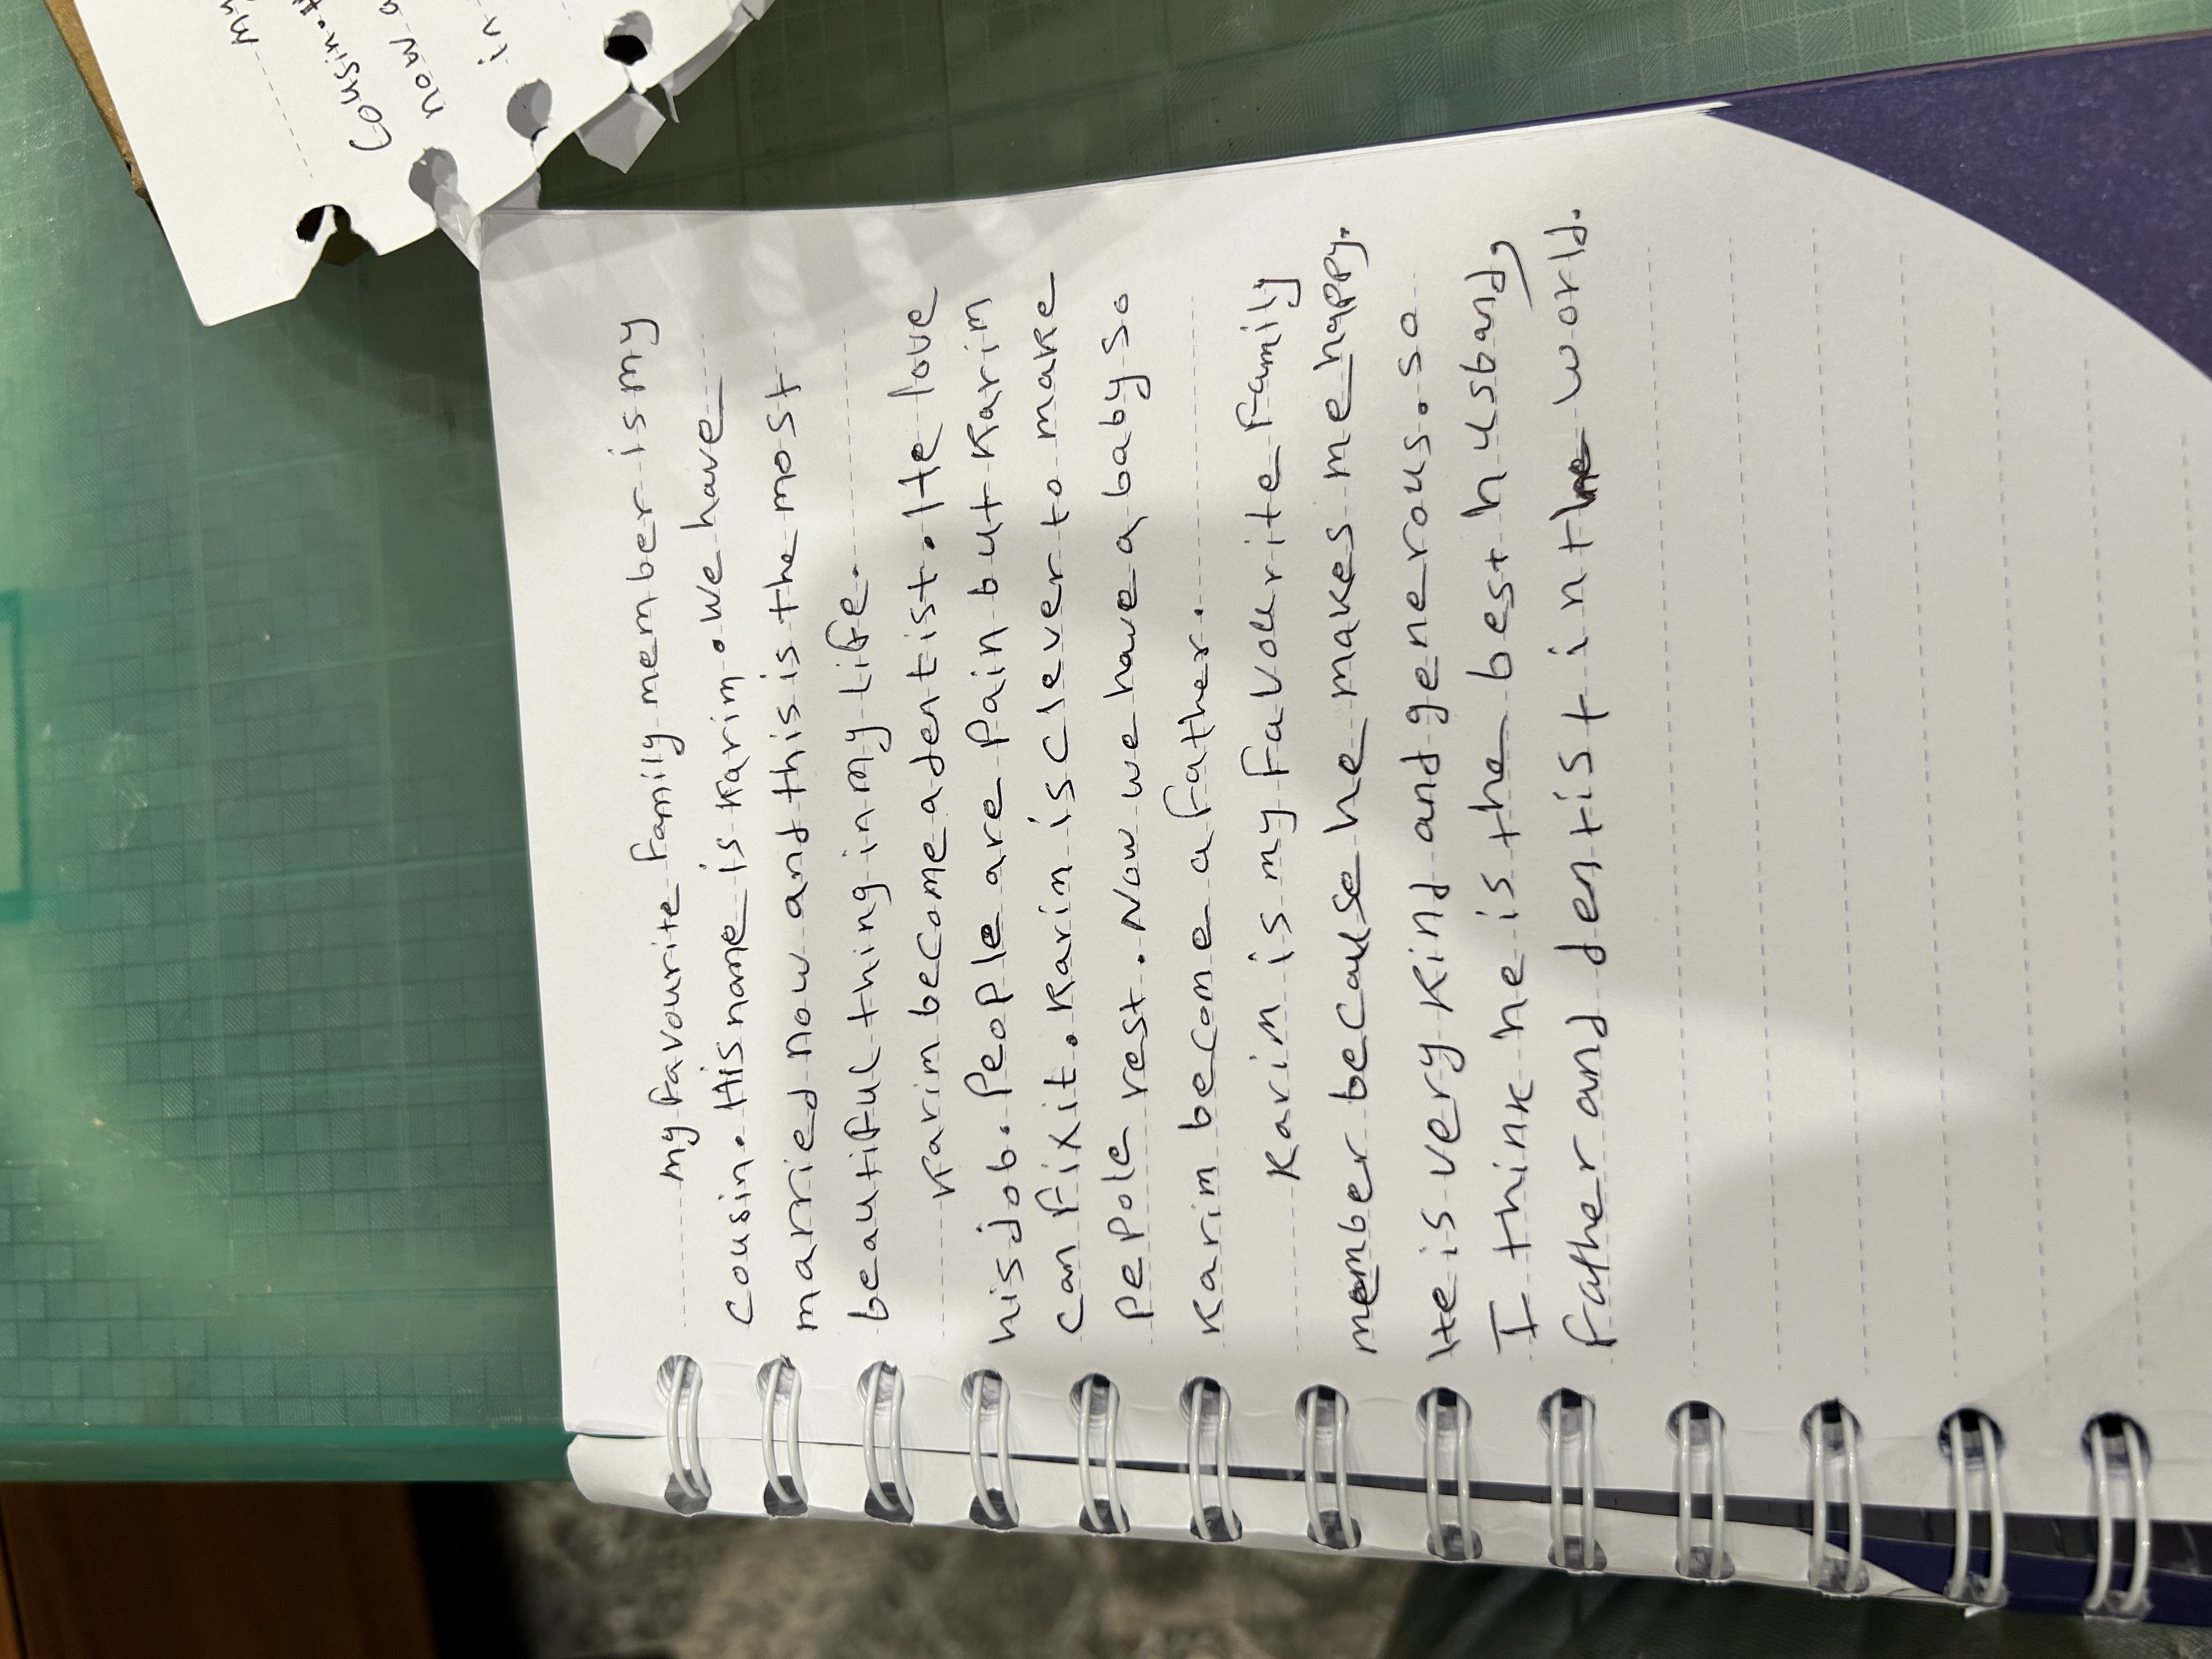 my favourite family member is my
cousin. His name is karim. We have
married now and this is the most
beautiful thing in my life.
karim become a dentist. He love
his job. People are Pain but Karim
can fix it. Karim is clever to make
pepole rest. Now we have a baby so
Karim become a father.
Karim is my favourite family
member because he makes me happy.
He is very kind and generous. so
I think he is the best husband,
father and dentist in the world.
my
Cousin.
now a
in